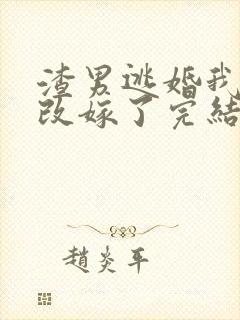 渣男逃婚我
改嫁了完結
趙炎平